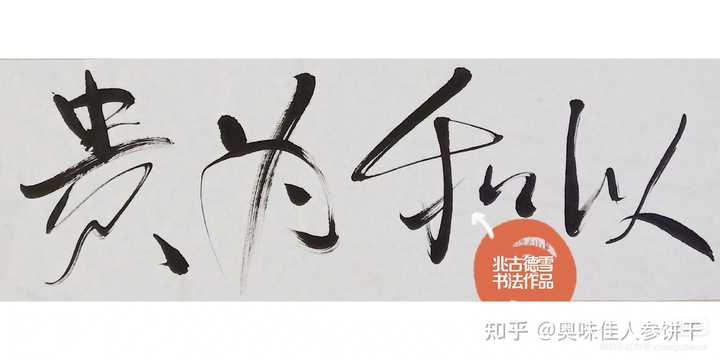 以和为贵
兆古德雪
书法作品
知乎 @奥味佳人参饼干